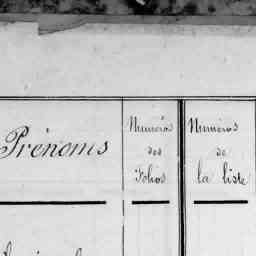 Prénoms
Numéros
des
Folios
Numéros
de
la liste